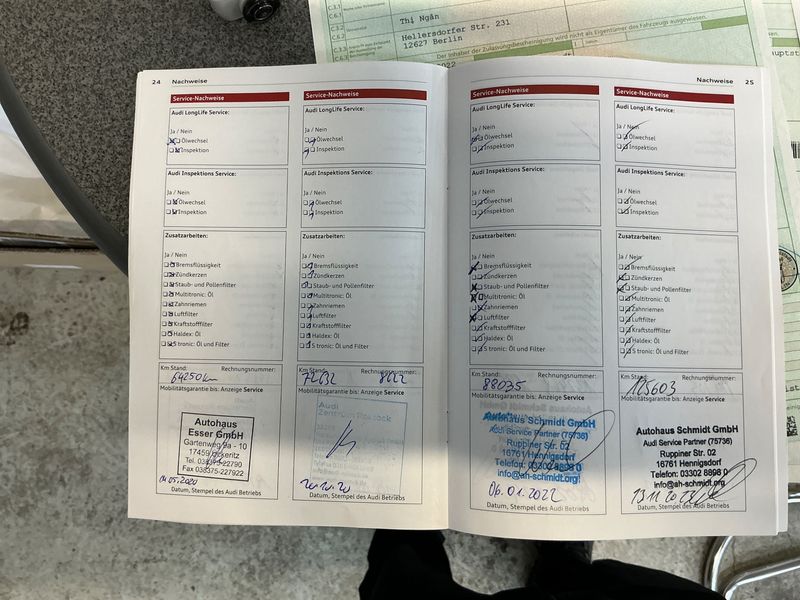 Thị Ngân
Hellersdorfer Str. 231
12627 Berlin
Der Inhaber der Zulassungsbescheinigung wird nicht als Eigentümer des Fahrzeugs ausgewiesen.
24 Nachweise
Service-Nachweise
Audi LongLife Service:
Ja / Nein
Ölwechsel
Inspektion
Audi Inspektions Service:
Ja / Nein
Ölwechsel
Inspektion
Zusatzarbeiten:
Ja / Nein
Bremsflüssigkeit
Zündkerzen
Staub- und Pollenfilter
Multitronic: Öl
Zahnriemen
Luftfilter
Kraftstofffilter
Haldex: Öl
S tronic: Öl und Filter
Km Stand: Rechnungsnummer:
64250 km
Mobilitätsgarantie bis: Anzeige Service
Autohaus
Esser GmbH
Gartenweg 9a - 10
17459
Fax 038375-227922
04.05.2020
Datum, Stempel des Audi Betriebs
Service-Nachweise
Audi LongLife Service:
Ja / Nein
Ölwechsel
Inspektion
Audi Inspektions Service:
Ja / Nein
Ölwechsel
Inspektion
Zusatzarbeiten:
Ja / Nein
Bremsflüssigkeit
Zündkerzen
Staub- und Pollenfilter
Multitronic: Öl
Zahnriemen
Luftfilter
Kraftstofffilter
Haldex: Öl
S tronic: Öl und Filter
Km Stand: Rechnungsnummer:
Mobilitätsgarantie bis: Anzeige Service
Audi
Zentrum Rostock
Datum, Stempel des Audi Betriebs
Nachweise 25
Service-Nachweise
Audi LongLife Service:
Ja / Nein
Ölwechsel
Inspektion
Audi Inspektions Service:
Ja / Nein
Ölwechsel
Inspektion
Zusatzarbeiten:
Ja / Nein
Bremsflüssigkeit
Zündkerzen
Staub- und Pollenfilter
Multitronic: Öl
Zahnriemen
Luftfilter
Kraftstofffilter
Haldex: Öl
S tronic: Öl und Filter
Km Stand: Rechnungsnummer:
88035
Mobilitätsgarantie bis: Anzeige Service
Autohaus Schmidt GmbH
Audi Service Partner (75736)
Ruppiner Str. 02
16761 Hennigsdorf
Telefon: 03302 8898 0
info@ah-schmidt.org
06.01.2022
Datum, Stempel des Audi Betriebs
Service-Nachweise
Audi LongLife Service:
Ja / Nein
Ölwechsel
Inspektion
Audi Inspektions Service:
Ja / Nein
Ölwechsel
Inspektion
Zusatzarbeiten:
Ja / Nein
Bremsflüssigkeit
Zündkerzen
Staub- und Pollenfilter
Multitronic: Öl
Zahnriemen
Luftfilter
Kraftstofffilter
Haldex: Öl
S tronic: Öl und Filter
Km Stand: Rechnungsnummer:
125603
Mobilitätsgarantie bis: Anzeige Service
Autohaus Schmidt GmbH
Audi Service Partner (75736)
Ruppiner Str. 02
16761 Hennigsdorf
Telefon: 03302 8898 0
info@ah-schmidt.org
13.11.2023
Datum, Stempel des Audi Betriebs